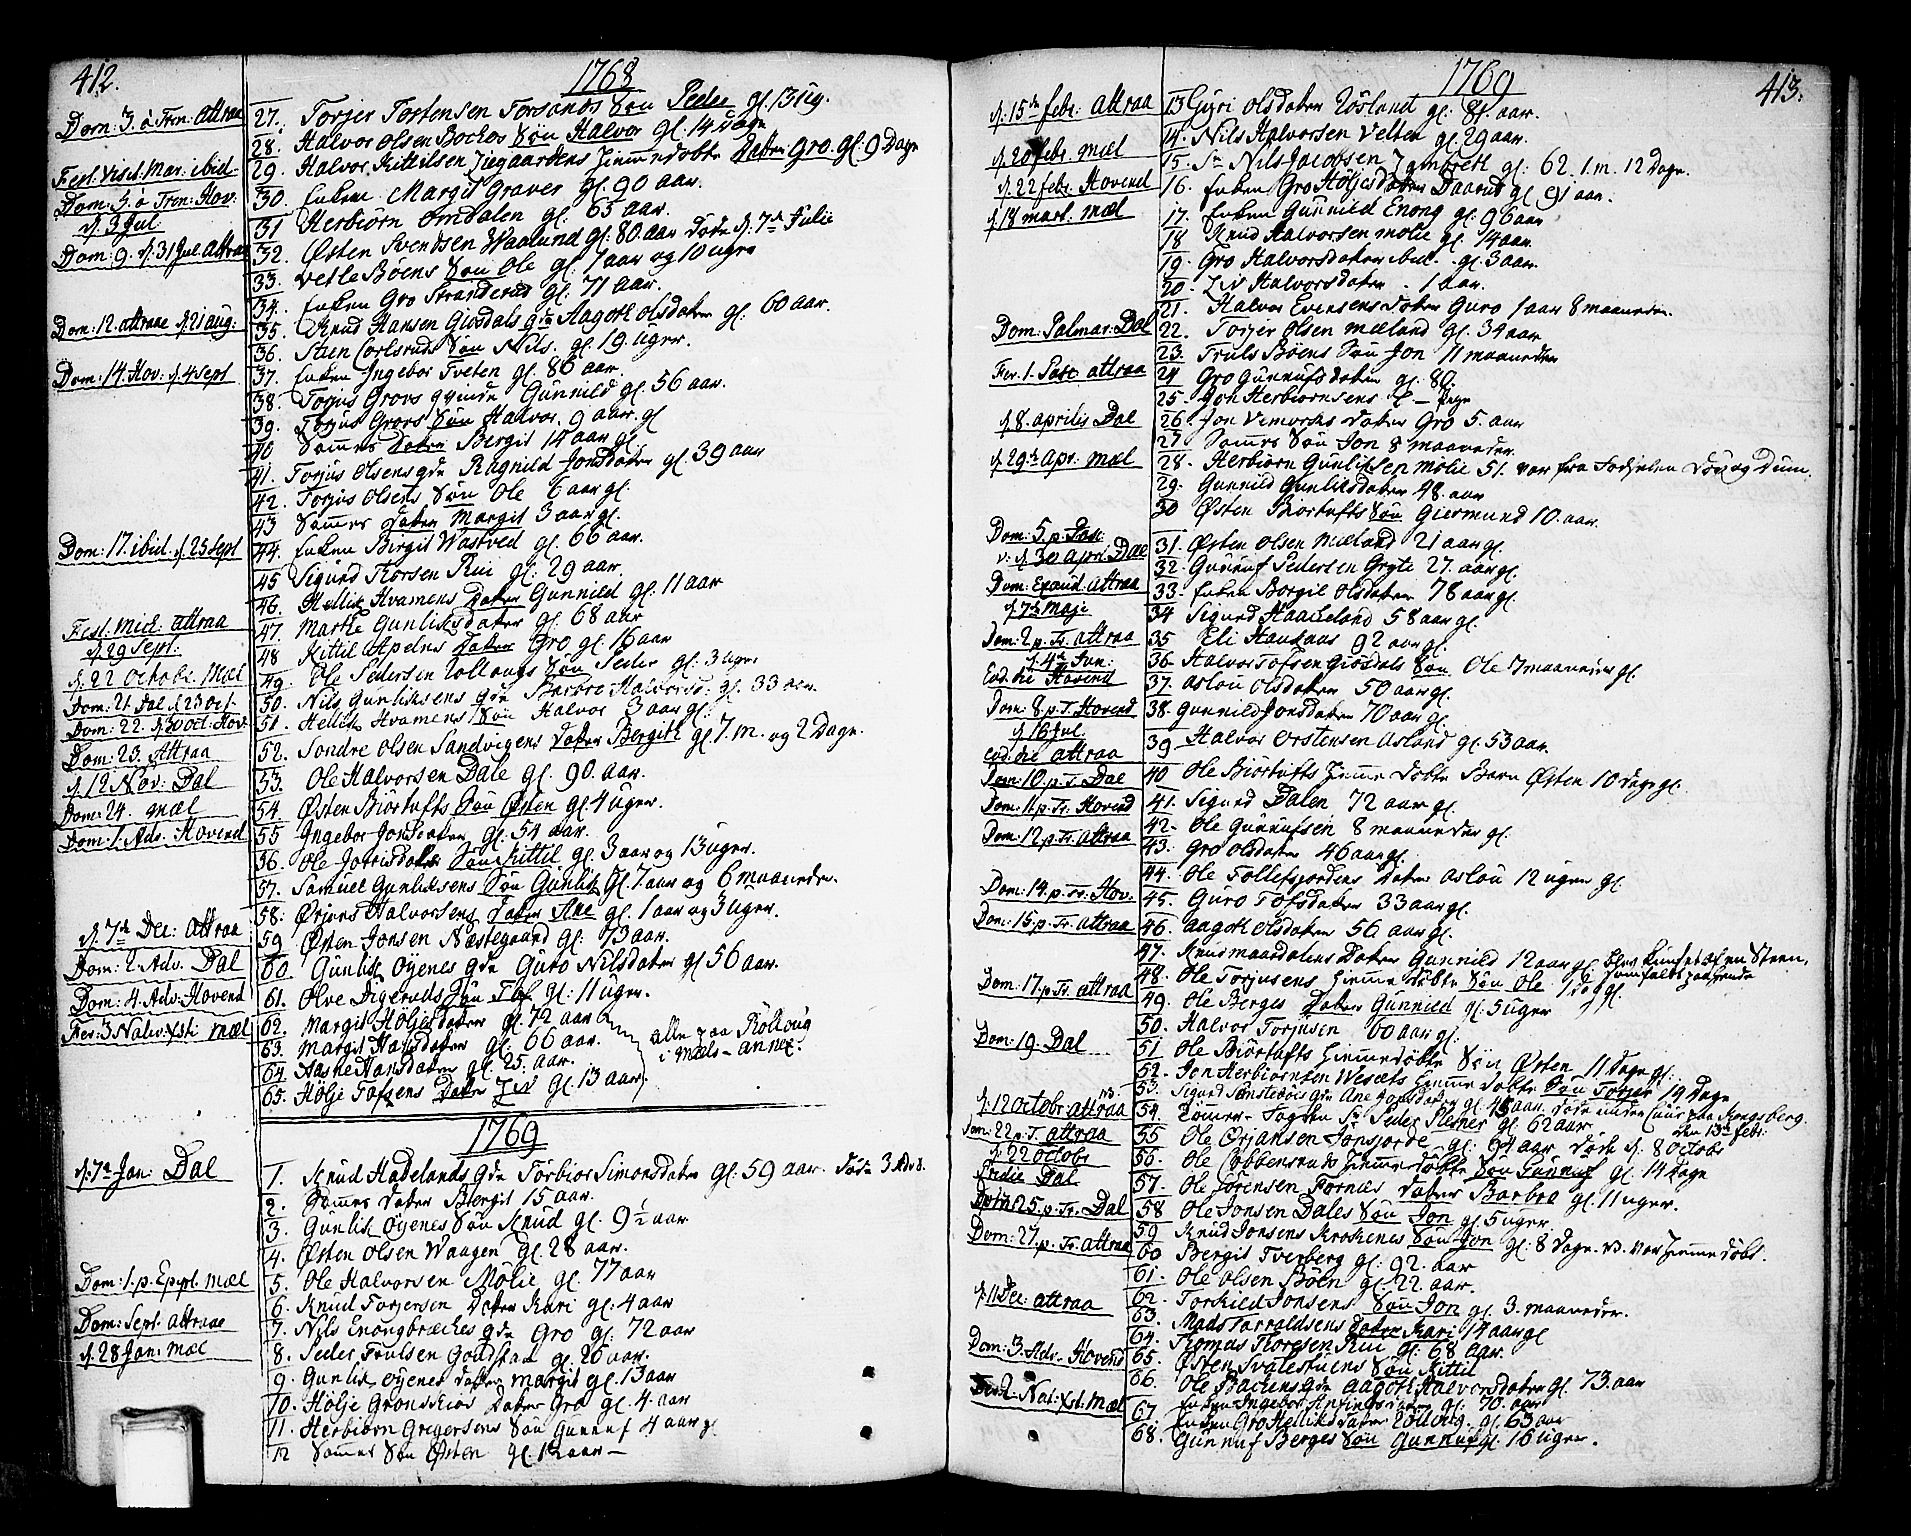 412.
1768
Dom. 3. a Tren: Attraa 27. Torjer Tostensen Torsands Søn Peder gl. 13 ug.
28. Halvor Olsen Bockos Søn Halvor gl. 14 Dage
29. Halvor Kittilsen Hiemedøbte Datter Gro. gl. 9 Dage
Fest. Visit. Mar. ibid. 30. Enken Margit Graver gl. 90 aar.
Dom: 5. a Tren: Hov: 31 Herbiørn Omdalen gl. 65 aar.
d. 3 Jul. 32. Østen Svendsen Waalund gl. 80. aar Døde d. 7de Julie
Dom: 9. d. 31 Jul Attraa 33. Vetle Bøens Søn Ole gl. 1 aar og 10 uger
34. Enken Gro Stranderud gl. 71 aar.
Dom: 12. attraae d. 21 aug: 35. Knud Hansen Giøsdals qde Aagoth Olsdatter gl. 60 aar.
36. Sten Carlsruds Søn Nils. gl. 19. uger.
Dom: 14. Hov. d. 4 Sept 37. Enken Ingebor Tveten gl. 86 aar.
38. Torjus Grovs qvinde Gunnild gl. 56 aar.
39. Torjus Grovs Søn Halvor. 9 aar. gl
40 Sammes Datter Bergit 14 aar gl.
41. Torjus Olsens qde Ragnild Jonsdatter gl. 39 aar
42. Torjus Olsens Søn Ole 6 aar gl.
43 Sammes Datter Margit 3 aar gl.
Dom: 17. ibid. d. 25 Sept 44. Enken Birgit Wastved gl. 66 aar.
45 Sigurd Thorsen Rui gl. 29 aar.
46. Hellik Hvamens Datter Gunnild gl. 11 aar
Fest. Mich. attraa 47. Marthe Gunliksdatter gl. 68 aar
d. 29 Sept. 48 Kittil Apelns Datter Gro gl. 16 aar
d. 22 Octobr. Mæl 49. Ole Pedersen Rollaugs Søn Peder gl. 3 uger
Dom: 21. Dal d. 23 Oct. 50. Nils Gunliksens qde Barbro Halvorsd: gl. 33 aar.
Dom: 22. d. 30 Oct: Hov. 51. Hellik Hvamens Søn Halvor 3 aar gl:
Dom: 23. Attraa 52. Sondre Olsen Sandvigens Datter Bergith gl 7. m. og 2 Dage.
d. 12 Nov: Dal 53. Ole Halvorsen Dale gl. 90. aar.
Dom: 24. mæl 54. Østen Biørtufts Søn Østen gl. 4 uger.
Dom: 1. Adv. Hovend 55 Ingebor Jonsdatter gl. 54 aar.
56. Ole Søn Kittil gl. 3 aar og 13 uger.
57. Samuel Gunliksens Søn Gunlik gl. 7 aar og 6 maaneder.
58. Ørjens Halvorsens Datter Ane gl. 1 aar og 3 uger.
d. 7de Dec: Attraa 59 Østen Jonsen Næstegaard gl: 73 aar.
Dom: 2. Adv. Dal 60 Gunlik Øyenes qde Guro Nilsdatter gl 56 aar.
Dom: 4. Adv: Hovend 61. Olve Digeruds Søn Tof gl: 11 uger.
Fer: 3 Nativ: Xsti Mæl 62. Margit Høljesdatter gl: 72 aar
63. Margit Hansdatter gl. 66 aar. alle paa Rollaug
64. Aasne Hansdatter gl: 25. aar. i Mæls-annex.
65. Hølje Tofsens Datter Ziv gl. 13 aar.
1769
d. 7de Jan: Dal 1. Knud Hadelands qde Torbior Simonsdatter gl: 59 aar.
2. Sammes Datter Bergit 15 aar.
3. Gunlik Øyenes Søn Knud gl: 9 1/2 aar
4. Østen Olsen Waagen gl. 28 aar.
Dom: 1. p. Epipl. Mæl 5. Ole Halvorsen Mølie gl. 77 aar
6. Knud Torjersen Datter Kari gl: 4 aar
Dom: Sept. attraae 7. Nils Enongbræckes qde Gro gl: 72 aar
d. 28 Jan: Mæl 8. Peder Truelsen gl: 26 aar.
9. Gunlik Øyenes Datter Margit gl. 13 aar
10. Hølje Datter Gro gl: 4. aar
11. Herbiørn Gregersens Søn Gunnuf 4 aar gl
12 Sammes Søn Østen gl 12 aar
1769
413.
d. 15de febr. attraa 13 Gyri Olsdatter gl: 81. aar.
14. Nils Halvorsen Velten gl 29 aar.
d. 20 febr. mæl 15. Sr. Nils Jacobsen gl: 62. 1. m. 12 Dage.
d. 22 febr. Hovend 16. Enken Gro Høljesdatter gl 91 aar.
d. 18 mart. mæl 17. Enken Gunnild Enong gl. 96 aar
18 Knud Halvorsen Mølie gl. 14 aar.
19. Gro Halvorsdatter ibid. gl. 3 aar.
20. Ziv Halvorsdatter 1 aar.
21. Halvor Evensens Datter Guro 1 aar 8 maaneder
Dom: Palmar: Dal 22. Torjer Olsen Mæland gl. 34 aar
23. Truls Bøens Søn Jon 11 maaneder
Fer. 1. Pasc attraa 24 Gro Gunnufsdatter gl: 80.
25. Herbiørnsens
d. 8. aprilis Dal 26. Jon Vemorks Datter Gro 5. aar
27. Sammes Søn Jon 8 maaneder.
d. 29de apr. mæl 28. Herbiørn Gunliksen Mølie 51. var fra Døv og Dum.
29. Gunnild Gunliksdatter 48. aar
30 Østen Biortufts Søn Giermund 10. aar.
Dom: 5. p. Pasc
d. 30 April Dal 31. Østen Olsen Mæland 21 aar gl.
Dom: Exaud. attraa 32. Gunnuf Pedersen Grøte 27. aar gl.
d. 7de Maji 33. Enken Borgil Olsdatter 78 aar gl.
34 Sigurd Haadeland 58 aar gl.
Dom: 2 p. Tr. attraa 35 Eli Haukaas 92 aar gl.
d. 4de Jun: 36. Halvor Tofsen Giøsdals Søn Ole 7 maaneder gl.
Eod: die Hovend 37. Aslou Olsdatter 50 aar gl.
Dom: 8 p. T. Hovend 38. Gunnild Jonsdatter 70 aar gl.
d. 16 Jul.
Eod: die attraa 39 Halvor Orstensen Asland gl. 53 aar.
Dom: 10. p. T. Dal 40 Ole Biørtufts Hieme Døbte Barn Østen 10 Dage gl.
Dom: 11. p. Tr. Hovend 41. Sigurd Dalen 72 aar gl.
Dom: 12 p. Tr. attraa 42. Ole Gunnufsen 8 maaneder gl.
43. Gro Olsdatter 46 aar gl.
44. Ole Tollefsjordens Datter Aslou 12 uger gl
Dom: 14. p. Tr. Hov. 45. Guro Tofsdatter 33 aar gl.
Dom: 15. p. Tr. attraa 46. Aagoth Olsdatter 56 aar gl.
47. Knusmaadalens Datter Gunnild 12 aar gl. blev af en Steen,
Dom: 17. p. Tr attraa 48. Ole Torjusens Hieme Døbte Søn Ole 1 Dag gl. som faldt paa hende
49. Ole Berges Datter Gunnild gl. 5 uger
50. Halvor Torjusen 60 aar gl.
Dom: 19. Dal 51 Ole Biørtufts Hiemedøbte Søn Østen 11 Dage gl.
52. Jon Herbiørnsen Wesæts Hieme Døbte Søn Torjer 19 Dage
53. Sigurd qde Ane Jonsdatter gl. 45 aar. døde paa Kongsberg.
d. 12 Octobr: attraa 54. Sr Peder gl 62 aar den 13de febr:
Dom: 22 p. T. attraa 55 Ole Ørjansen gl. 64 aar døde d. 8 Octobr
d. 22 Octobr 56. Ole Hiemedøbte Søn Gunnuf gl. 14 Dage
Dal 57. Ole Sørensen Fornæs Datter Barbra gl. 11 uger.
Dom: 25. p. Tr. Dal 58 Ole Jonsen Dales Søn Jon gl 5 uger
Dom: 27. p. Tr. attraa 59 Knud Jonsens Krokenes Søn Jon gl: 8 Dage. NB. Var Hieme døbt.
60 Bergit Tverberg gl: 92. aar
61. Ole Olsen Bøen gl. 22. aar.
d. 11 Dec: attraa 62. Torkild Jonsens Søn Jon gl 3. maaneder.
63. Mads Tarraldsens Datter Kari 14 aar gl
64. Thomas Thoresen Rui gl: 68 aar.
Dom: 3. Adv. Hovend 65. Østen Søn Kittil
66. Ole Backens qde Aagoth Halvorsdatter gl. 73. aar
Fer 2. Nat: Xsti. Mæl 67. Enken Ingebor gl. 70. aar
Enken Gro Helliksdatter Rollaug. gl. 63 aar
68. Gunnuf Berges Søn Gunnuf gl. 16 uger.